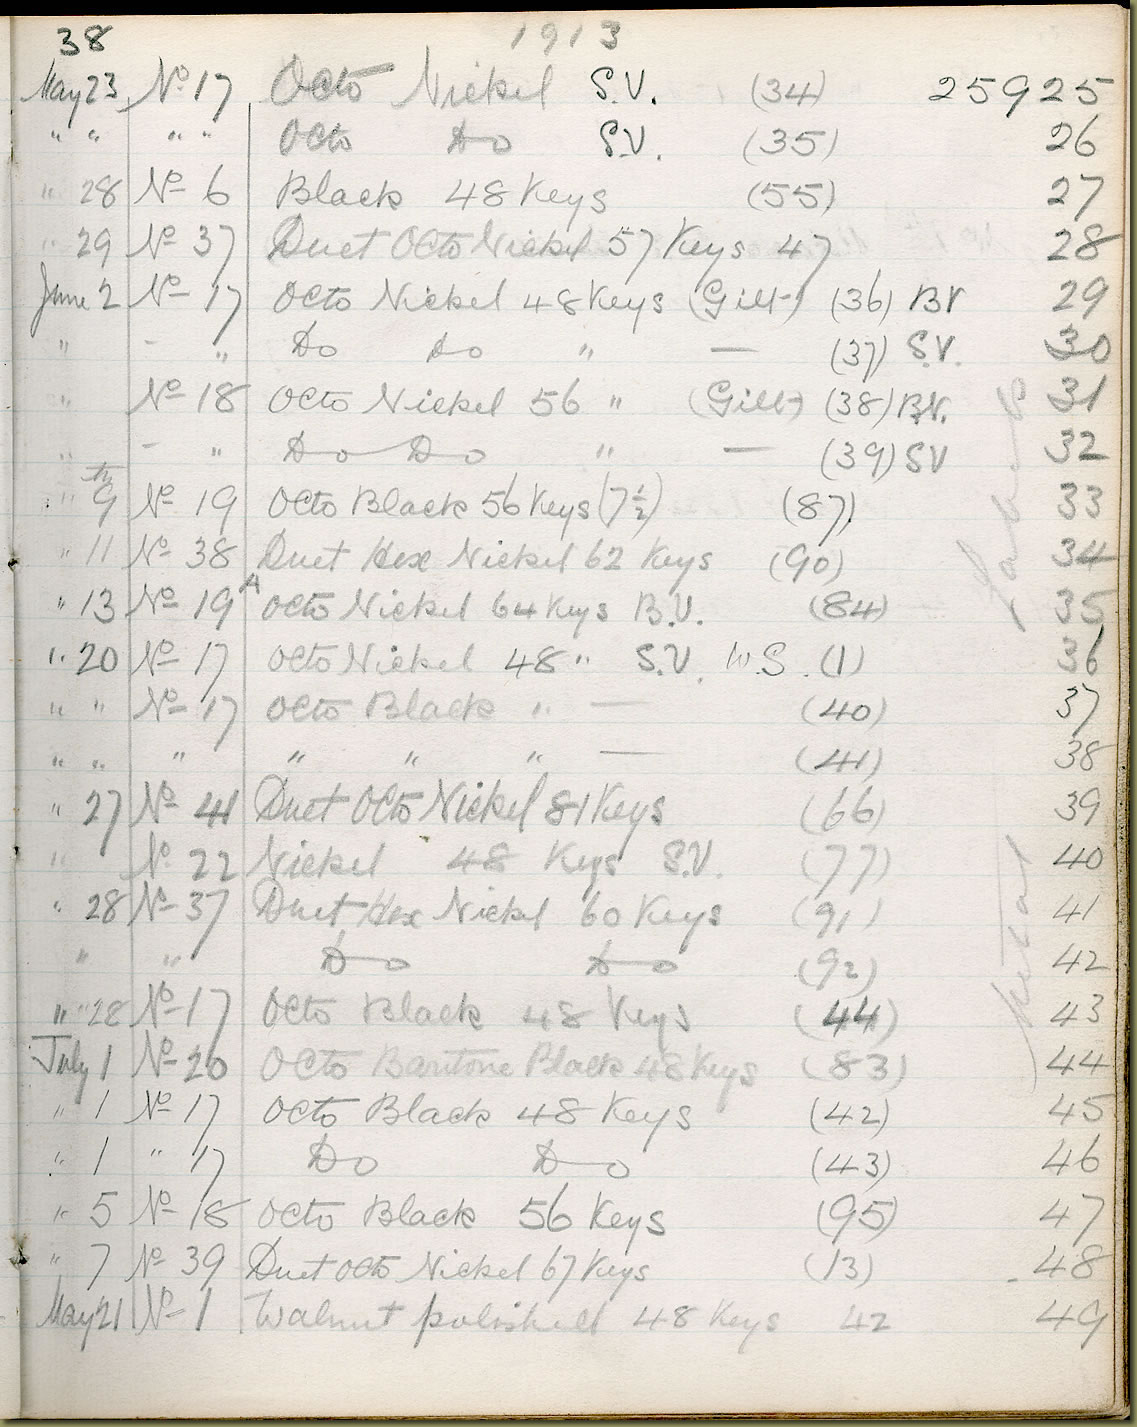 38 1913
May 23 No 17 Octo Nickel S.V. (34) 25925
" " " " Octo Do S.V. (35) 26
" 28 No 6 Black 48 Keys (55) 27
" 29 No 37 Duet Octo Nickel 57 Keys 47 28
June 2 No 17 Octo Nickel 48 Keys (Gilt) (36) B V 29
" - " Do Do " — (37) S.V. 30
" No 18 Octo Nickel 56 " (Gilt) (38) B.V. 31
" - " Do Do " — (39) SV 32
" 9th No 19 Octo Black 56 Keys (7½) (87) 33
" 11 No 38 Duet Hex Nickel 62 Keys (90) 34
" 13 No 19A Octo Nickel 64 Keys B.V. (84) 35
" 20 No 17 Octo Nickel 48 " S.V. W.S. (1) 36
" " No 17 Octo Black " — (40) 37
" " " " " " — (41) 38
" 27 No 41 Duet Octo Nickel 81 Keys (66) 39
" No 22 Nickel 48 Keys S.V. (77) 40
" 28 No 37 Duet Hex Nickel 60 Keys (91) 41
" " Do Do (92) 42
" 28 No 17 Octo Black 48 Keys (44) 43
July 1 No 20 Octo Baritone Black 48 Keys (83) 44
" 1 No 17 Octo Black 48 Keys (42) 45
" 1 " 17 Do Do (43) 46
" 5 No 18 Octo Black 56 Keys (95) 47
" 7 No 39 Duet Octo Nickel 67 Keys (13) 48
May 21 No 1 Walnut polished 48 Keys 42 49